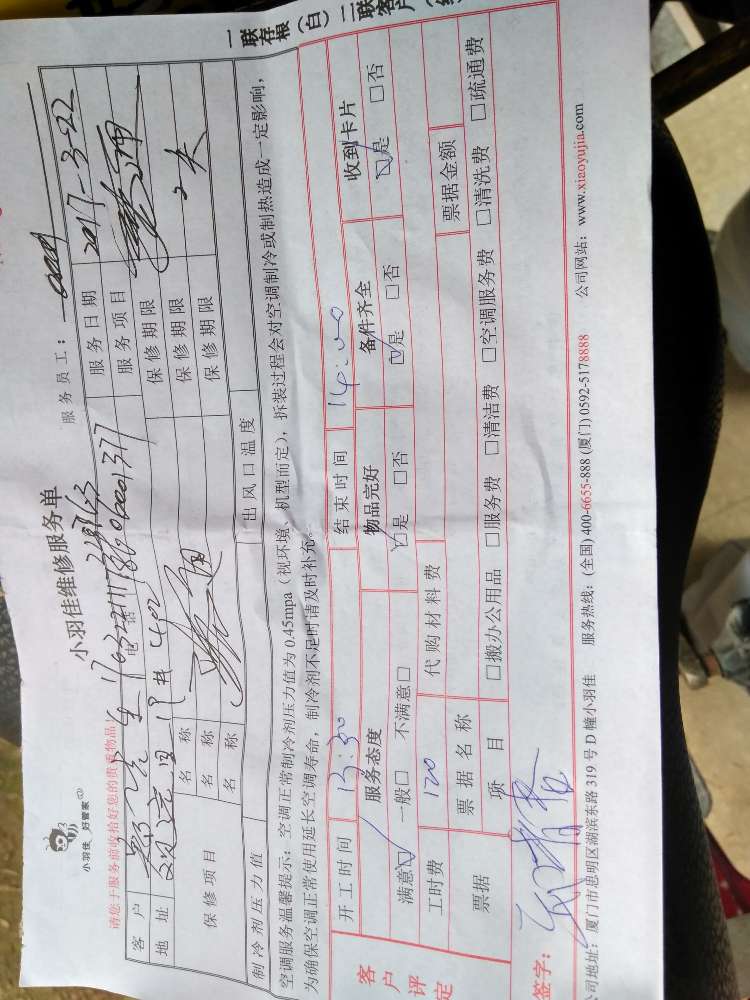 一联存根(白)二联客户(红
小羽佳 好管家
小羽佳维修服务单
服务员工：
请您于服务前收拾好您的贵重物品！
客户 电话 服务日期 2017-3-22
地址 服务项目
保修项目 名称 保修期限 2天
名称 保修期限
名称 保修期限
制冷剂压力值 出风口温度
空调服务温馨提示：空调正常制冷剂压力值为0.45mpa（视环境、机型而定），拆装过程会对空调制冷或制热造成一定影响，
为确保空调正常使用延长空调寿命，制冷剂不足时请及时补充。
客户评定
开工时间 13:30 结束时间 14:00
服务态度 物品完好 备件齐全 收到卡片
满意☑ 一般□ 不满意□ ☑是 □否 ☑是 □否 ☑是 □否
工时费 120 代购材料费
票据 票据名称 票据金额
项目 □搬办公用品 □服务费 □清洁费 □空调服务费 □清洗费 □疏通费
签字：
公司地址：厦门市思明区湖滨东路319号D幢小羽佳 服务热线：(全国)400-6655-888 (厦门)0592-5178888 公司网站：www.xiaoyujia.com